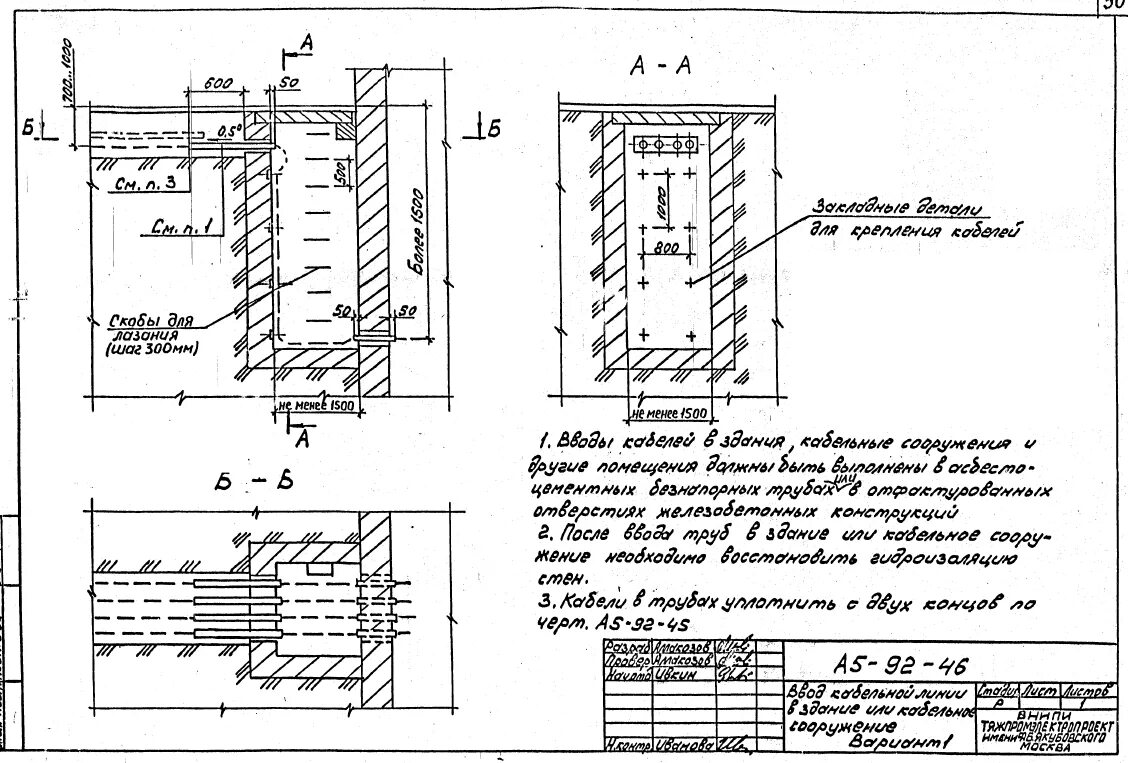 50
А
А - А
700...1000
600
50
Б
Б
0.5°
См. п. 3
См. п. 1
500
Более 1500
1000
800
Закладные детали
для крепления кабелей
Скобы для
лазания
(шаг 300мм)
50
50
не менее 1500
А
не менее 1500
Б - Б
1. Вводы кабелей в здания, кабельные сооружения и
другие помещения должны быть выполнены в асбесто-
цементных безнапорных трубах или в отфактурованных
отверстиях железобетонных конструкций
2. После ввода труб в здание или кабельное соору-
жение необходимо восстановить гидроизоляцию
стен.
3. Кабели в трубах уплотнить с двух концов по
черт. А5-92-45
Разраб Амакозов
Провер Амакозов
Нач.отд Ивкин
Н.контр Иванова
А5-92-46
Ввод кабельной линии
в здание или кабельное
сооружение
Вариант 1
Стадия Лист Листов
Р 1
ВНИПИ
ТЯЖПРОМЭЛЕКТРОПРОЕКТ
ИМЕНИ Ф.Б. ЯКУБОВСКОГО
МОСКВА